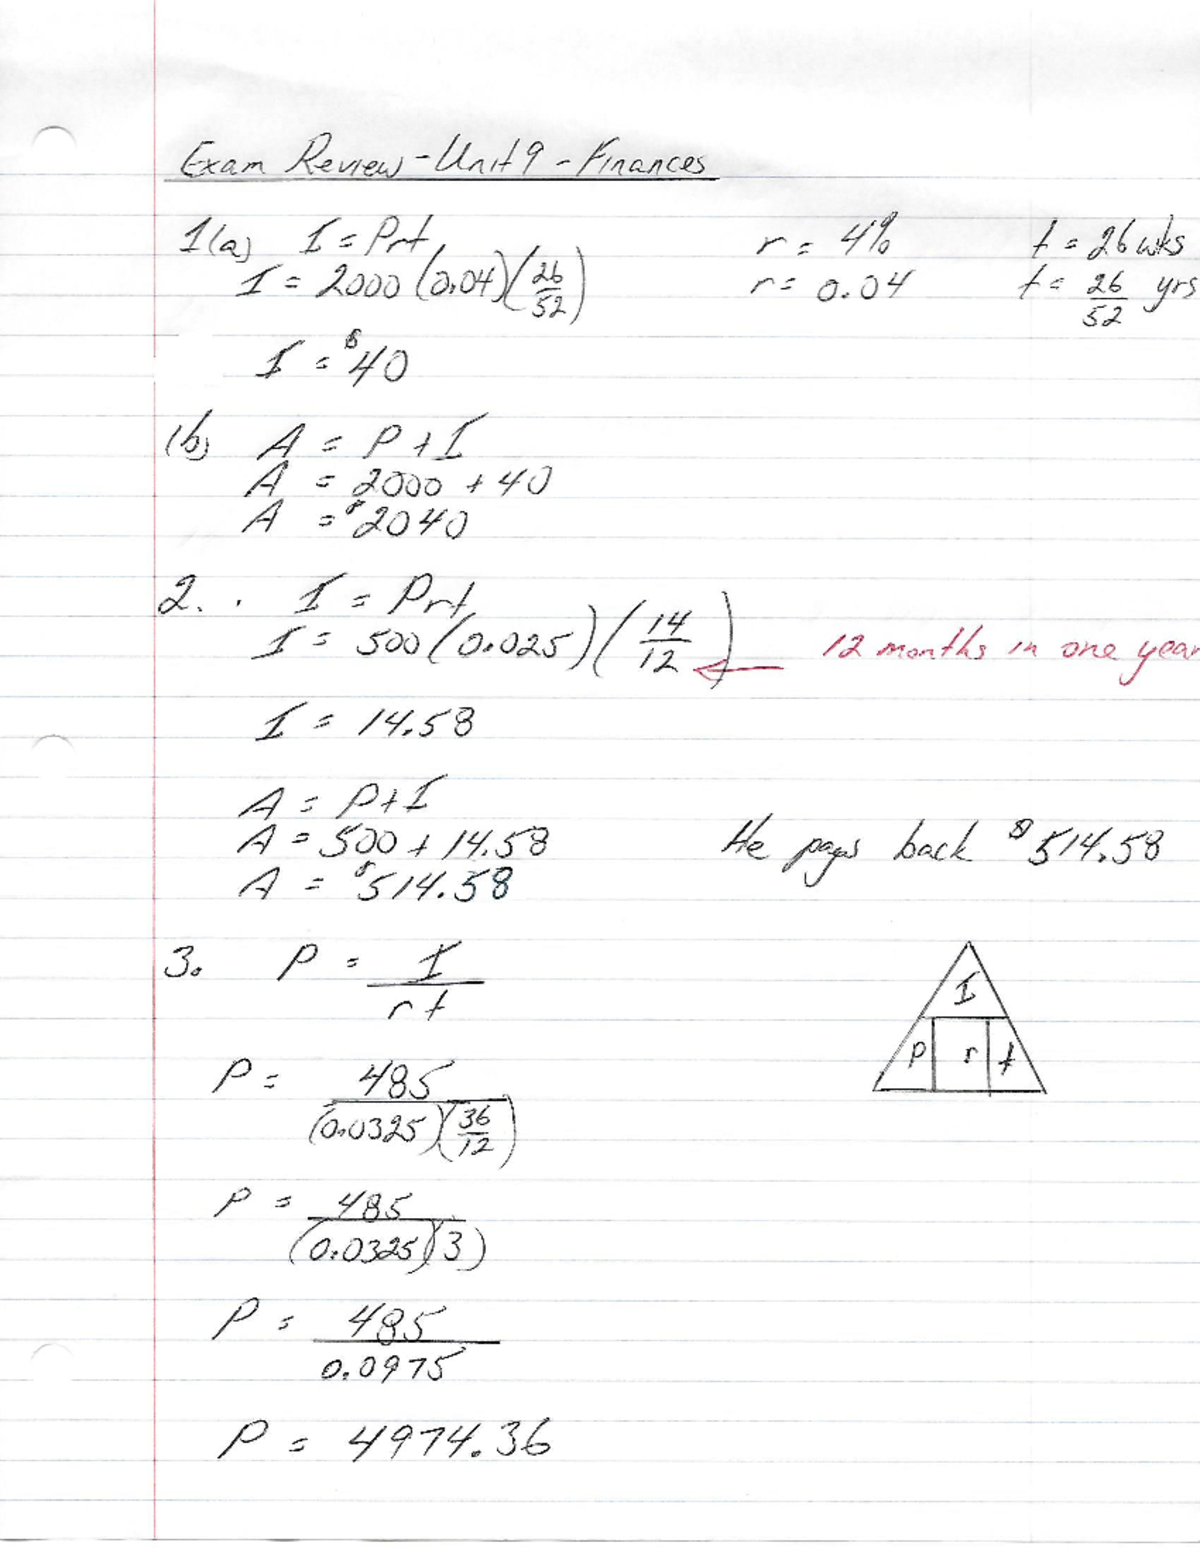 Exam Review - Unit 9 - Finances
1(a) I = Prt r = 4% t = 26 wks
I = 2000 (0.04)(26/52) r = 0.04 t = 26/52 yrs
I = $40
1b) A = P + I
A = 2000 + 40
A = $2040
2. I = Prt
I = 500 (0.025)(14/12) 12 months in one year
I = 14.58
A = P + I
A = 500 + 14.58 He pays back $514.58
A = $514.58
3. P = I
rt
I
P r t
P = 485
(0.0325)(36/12)
P = 485
(0.0325)(3)
P = 485
0.0975
P = 4974.36